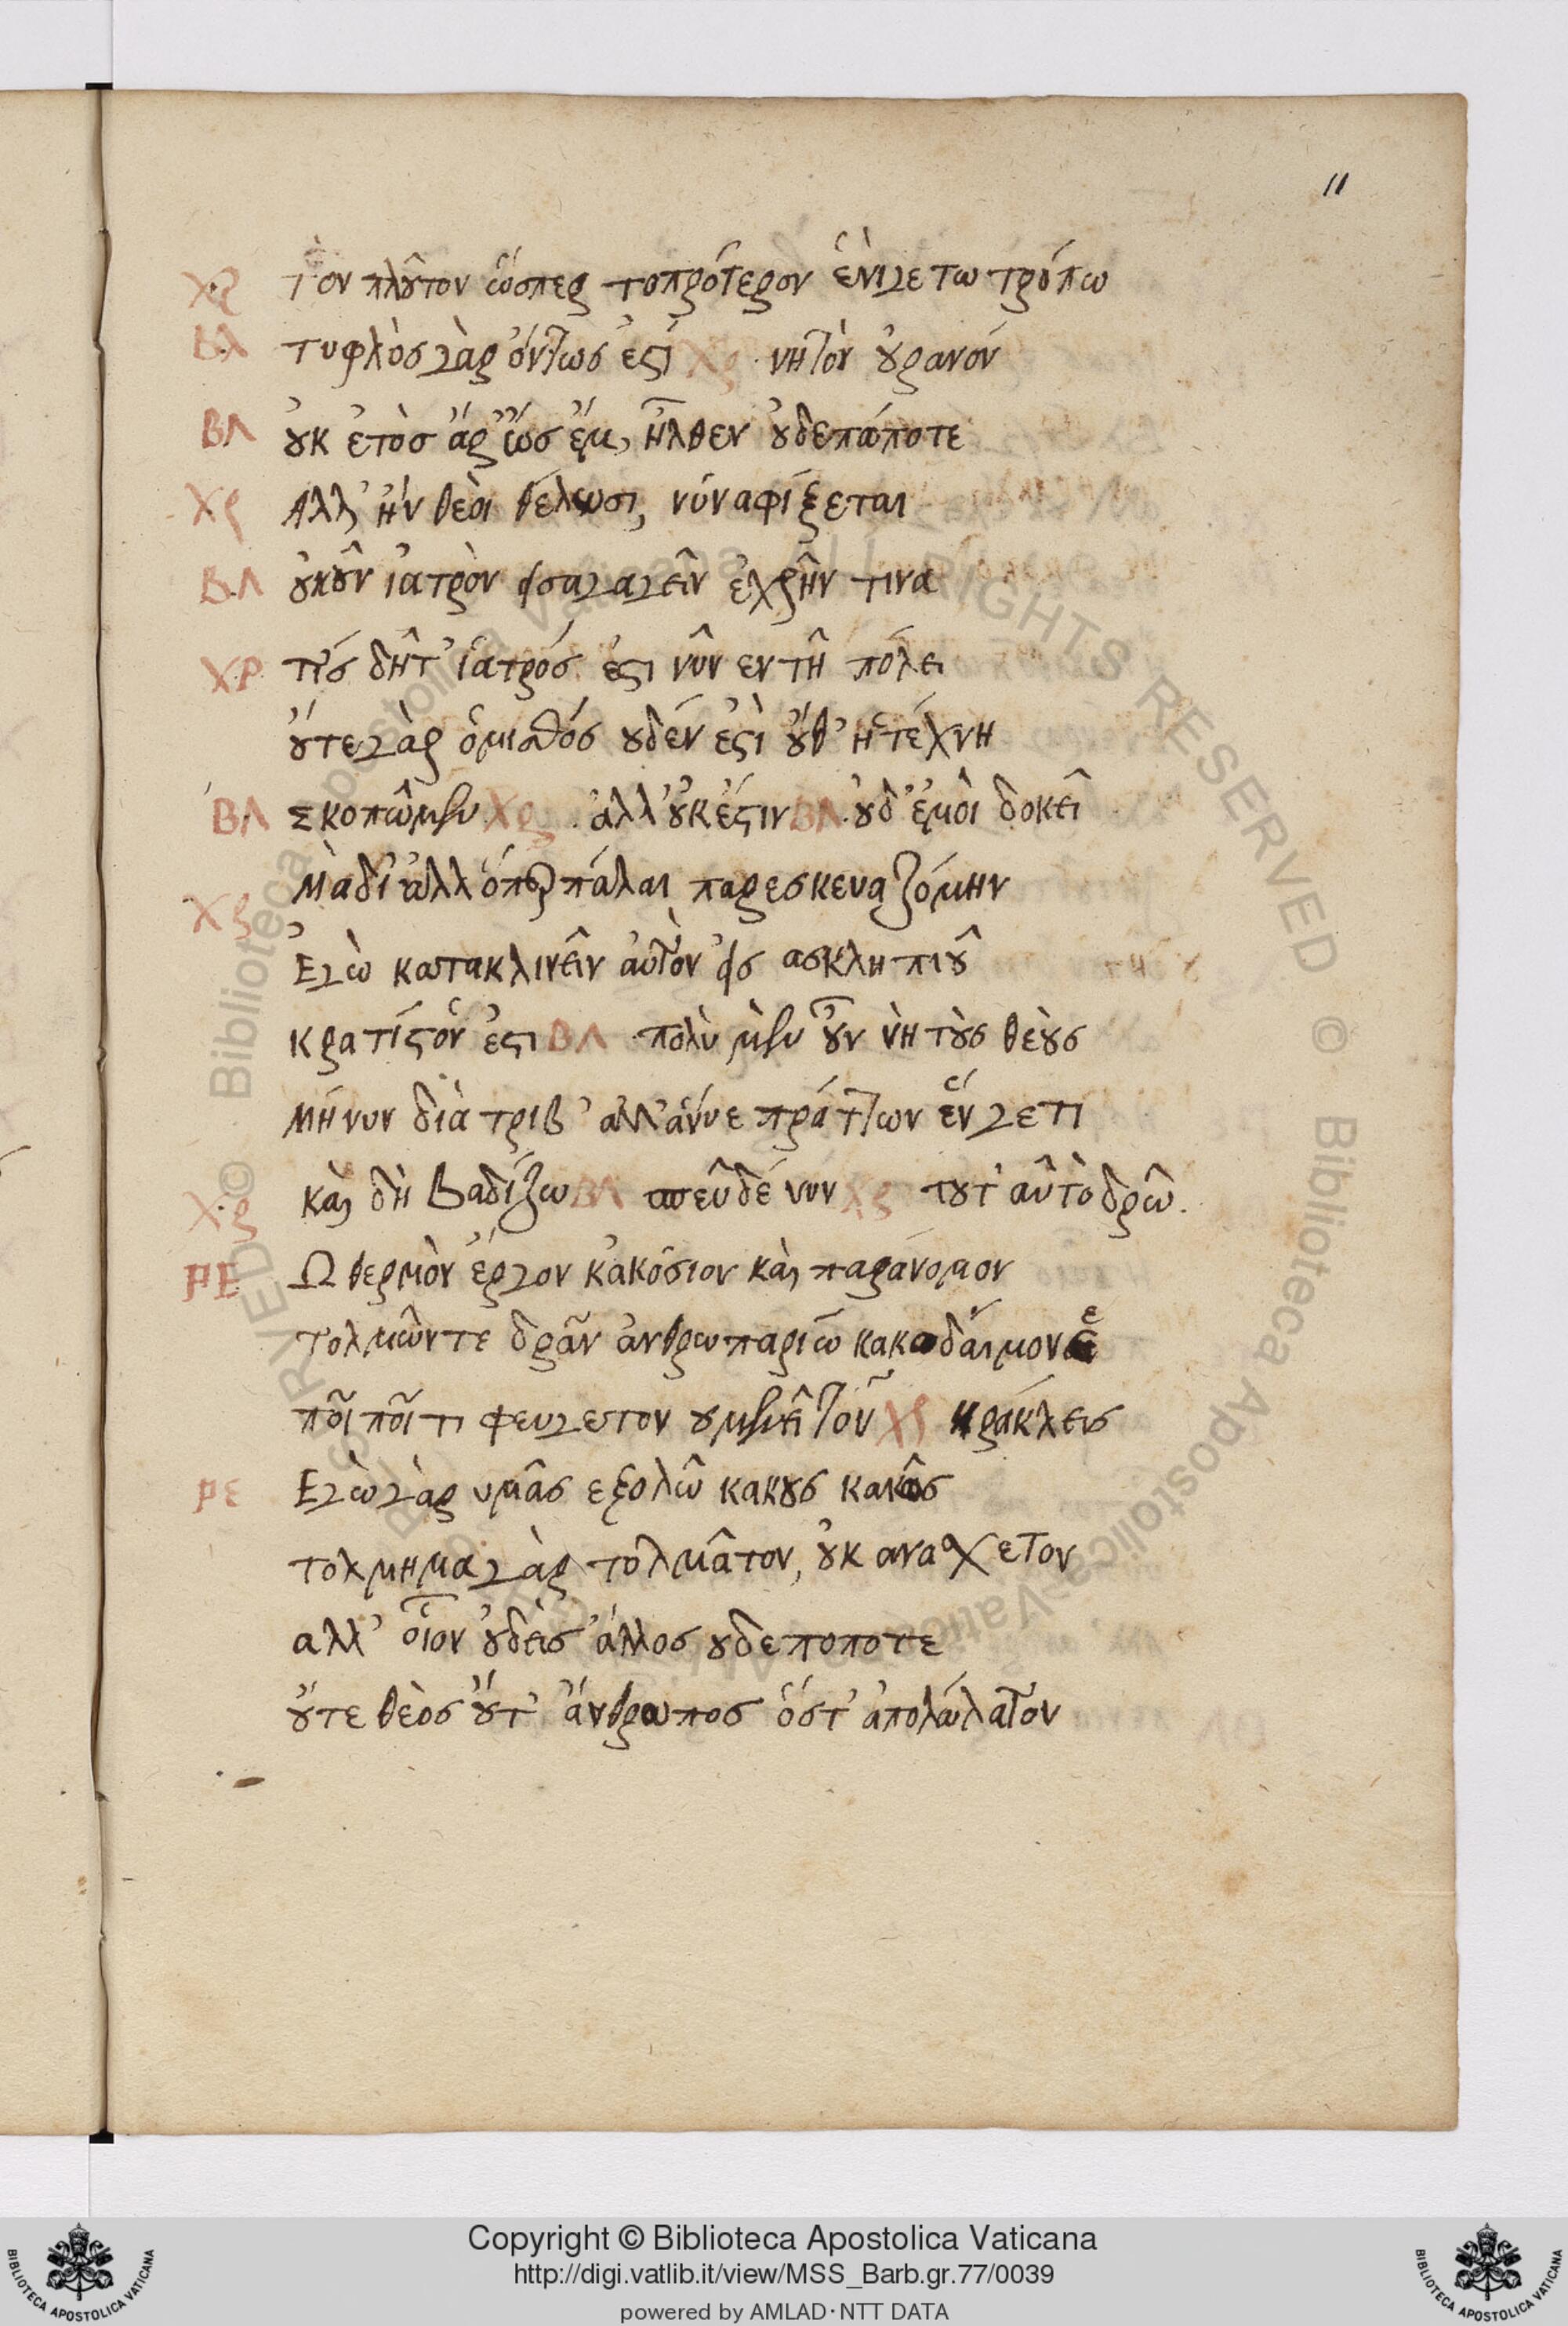 11
Χρ Τὸν πλοῦτον ὥσπερ τοπρότερον ἑνίγετω τρόπω
Βλ τυφλὸσ γὰρ ὄντωσ ἐστί Χρ νητὸν οὐρανόν
ΒΛ οὐκ ἐτὸσ ἄρ' ὥσ ἔμ' ἦλθεν οὐδεπώποτε
Χρ Αλλ' ἢν θεὸι θέλωσι, νύν αφίξεται
ΒΛ οὐκοῦν ἰατρὸν εἰσαγαγεῖν ἐχρῆν τινα
ΧΡ τίσ δῆτ' ἰατρόσ ἐστι νῦν εν τῆ πόλει
οὔτε γὰρ ὁμισθόσ ουδέν ἐστὶ οὔθ' ἡ τέχνη
ΒΛ σκοπῶμεν Χρ ἀλλ' οὐκ ἔστιν ΒΛ οὐδ' ἐμοὶ δοκεῖ
Χρ Μὰ δί' ἀλλ' ὅπερ πάλαι παρεσκευαζόμην
Ἐγὼ κατακλινεῖν αὐτὸν εἰσ ασκληπιοῦ
κρατίστόν ἐστι ΒΛ πολὺ μὲν οὖν νὴ τοὺσ θεοὺσ
Μή νυν διὰ τριβ' αλλ' άνυε πράττων ἕν γετι
Χρ καὶ δὴ βαδίζω ΒΛ σπεῦδέ νυν Χρ τουτ' αὐτὸ δρῶ.
ΡΕ Ω θερμὸν ἔργον κἀκόσιον καὶ παράνομον
τολμῶντε δρᾶν ἀνθρωπαρίω κακοδαίμονε
ποῖ ποῖ τι φευγετον ουμενεῖτον Χρ ηράκλεισ
ΡΕ Εγὼ γὰρ υμᾶσ εξολῶ κακουσ κακῶσ
τολμημα γὰρ τολμᾶτον, οὐκ ανασχετον
αλλ' οἷον οὐδεὶσ ἄλλοσ ουδεποποτε
οὔτε θεὸσ οὔτ' ἄνθρωποσ ὅστ' ἀπολώλατον
Copyright © Biblioteca Apostolica Vaticana
http://digi.vatlib.it/view/MSS_Barb.gr.77/0039
powered by AMLAD·NTT DATA